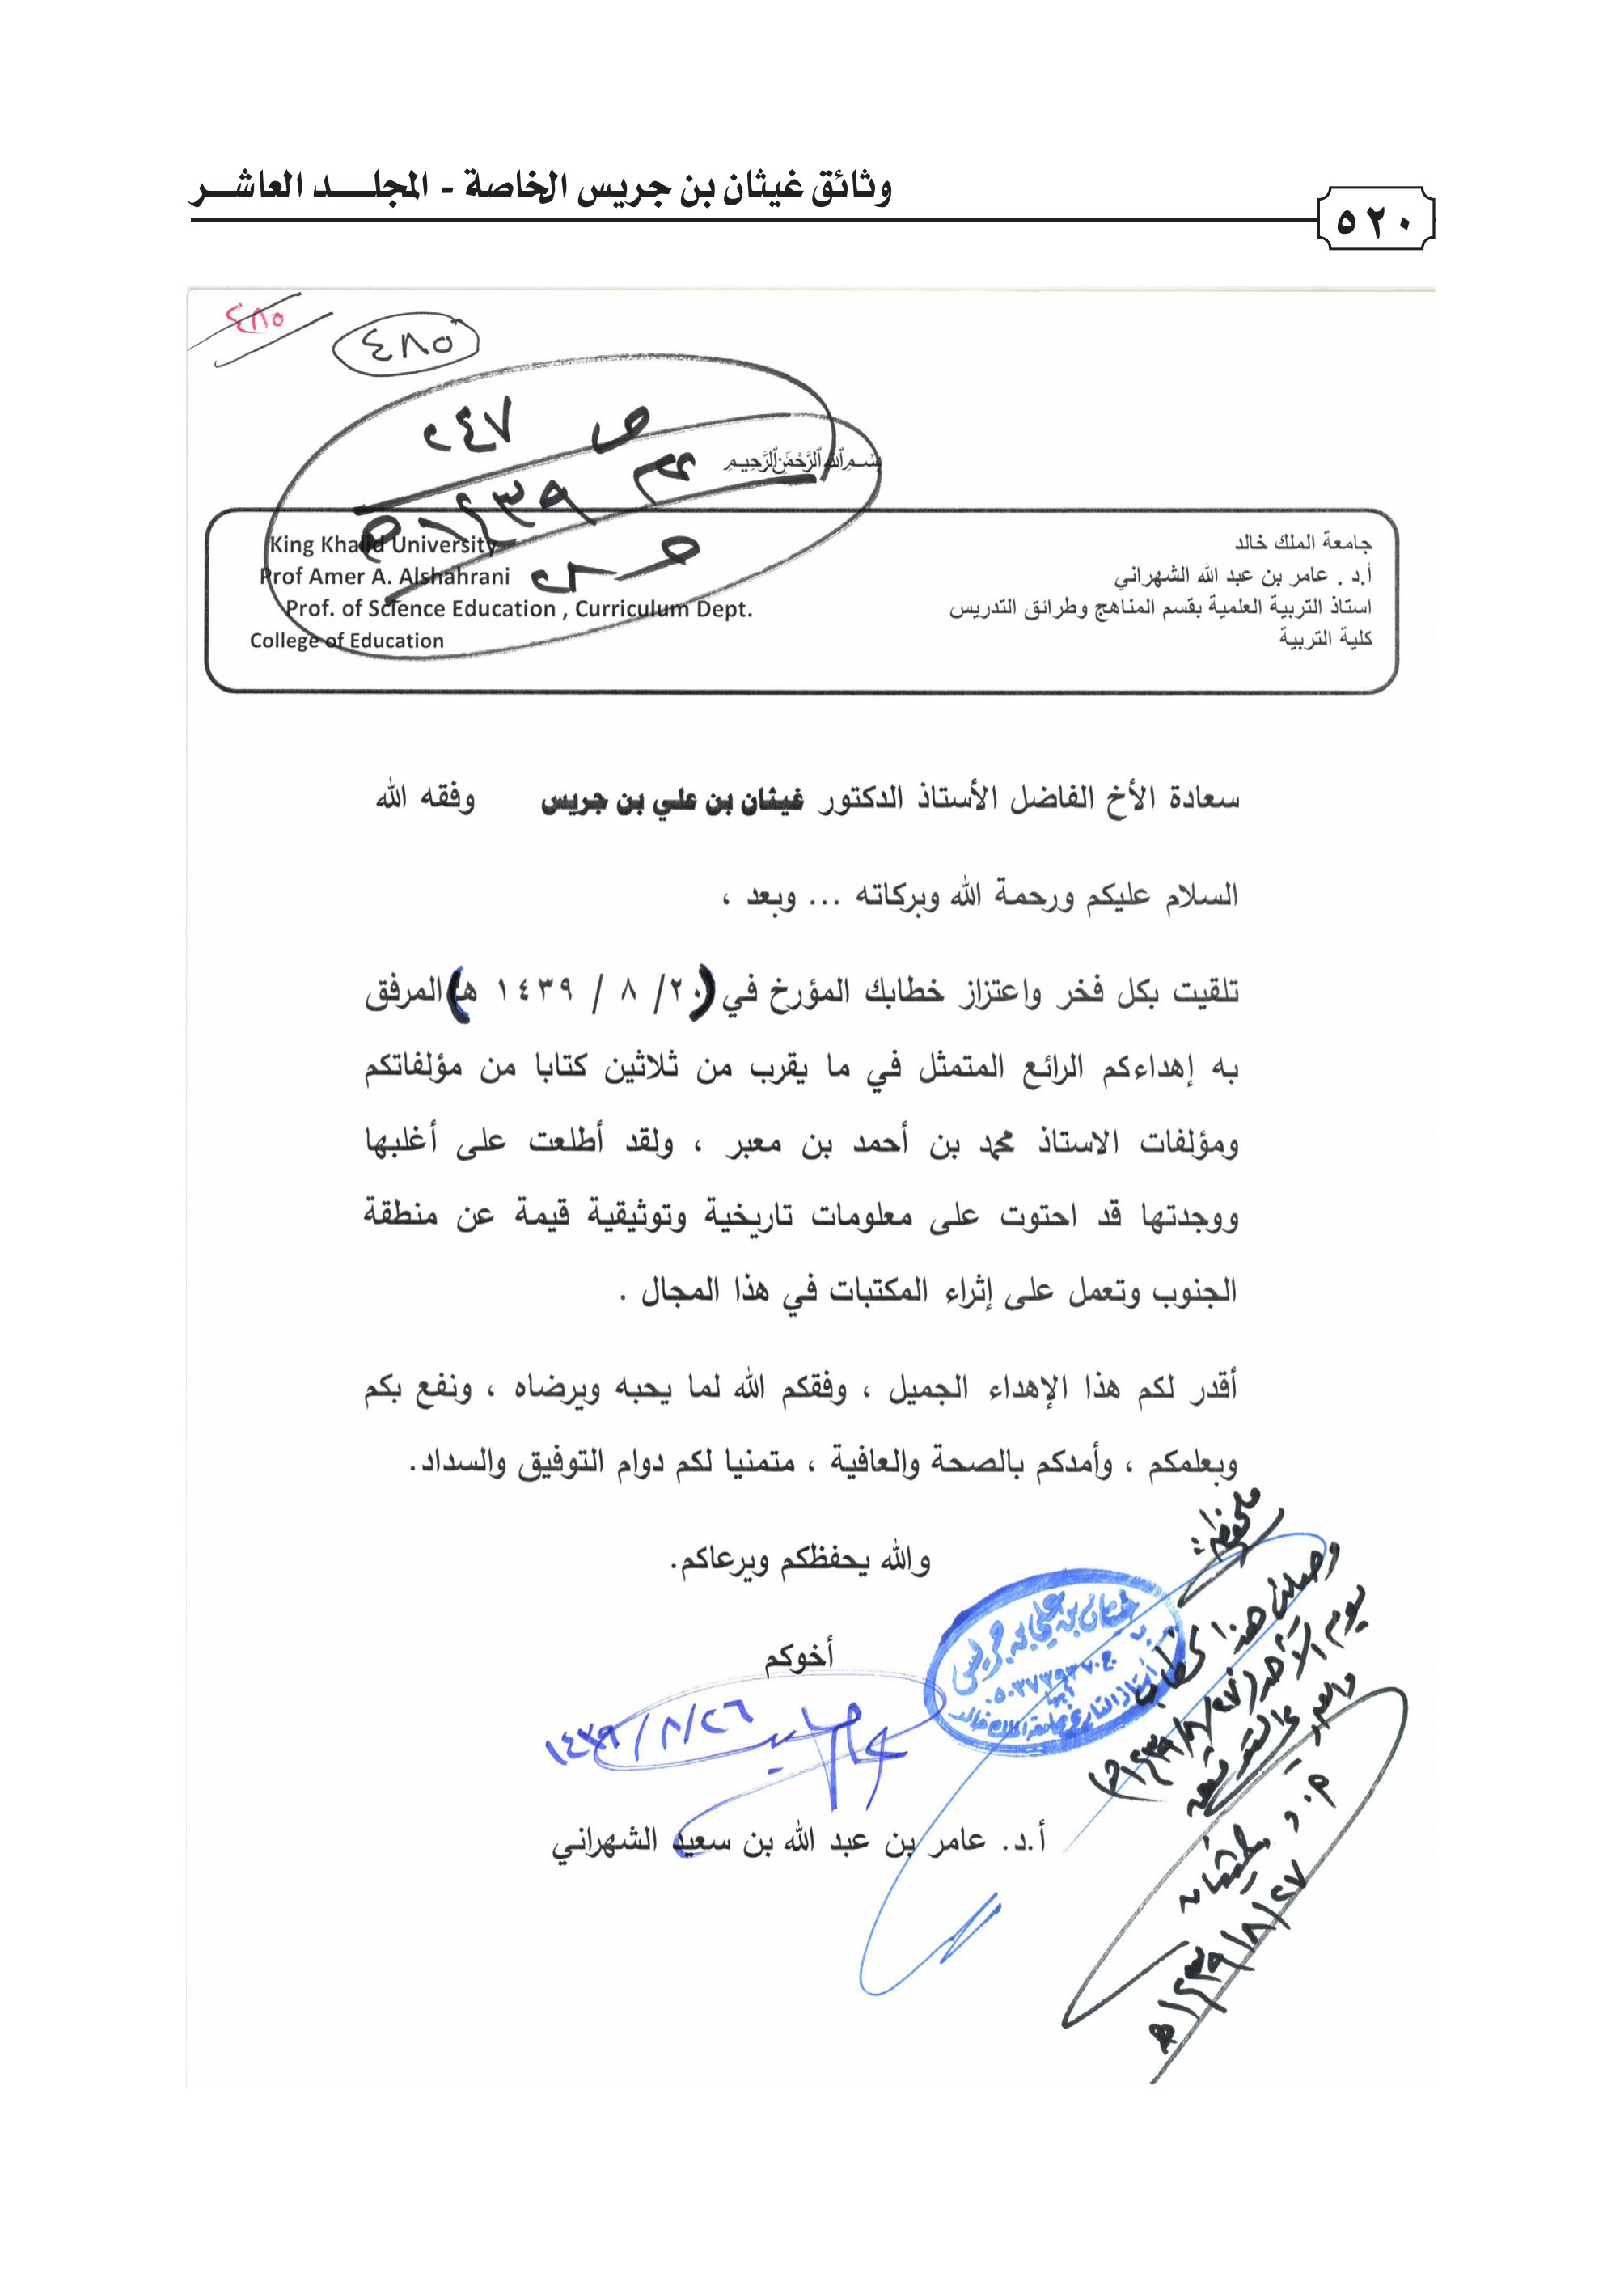 وثائق غيثان بن جريس الخاصة - المجلـــد العاشـــر
٥٢٠
٤٨٥
٤٨٥
ص ٢٤٧
م ١٤٣٩هـ
بسم الله الرحمن الرحيم
جامعة الملك خالد
أ.د . عامر بن عبد الله الشهراني
استاذ التربية العلمية بقسم المناهج وطرائق التدريس
كلية التربية
King Khalid University
Prof Amer A. Alshahrani
Prof. of Science Education , Curriculum Dept.
College of Education
سعادة الأخ الفاضل الأستاذ الدكتور غيثان بن علي بن جريس وفقه الله
السلام عليكم ورحمة الله وبركاته ... وبعد ،
تلقيت بكل فخر واعتزاز خطابك المؤرخ في (٢٠/ ٨ / ١٤٣٩ هـ) المرفق
به إهداءكم الرائع المتمثل في ما يقرب من ثلاثين كتابا من مؤلفاتكم
ومؤلفات الاستاذ محمد بن أحمد بن معبر ، ولقد أطلعت على أغلبها
ووجدتها قد احتوت على معلومات تاريخية وتوثيقية قيمة عن منطقة
الجنوب وتعمل على إثراء المكتبات في هذا المجال .
أقدر لكم هذا الإهداء الجميل ، وفقكم الله لما يحبه ويرضاه ، ونفع بكم
وبعلمكم ، وأمدكم بالصحة والعافية ، متمنيا لكم دوام التوفيق والسداد.
والله يحفظكم ويرعاكم.
أخوكم
١٤٣٩/٨/٢٦
أ.د. عامر بن عبد الله بن سعيد الشهراني
غيثان بن علي بن جريس
ج.٠٥٠٣٧٣٩٣٧٠
أبها
أستاذ التاريخ بجامعة الملك خالد
ملحوظة:
وصلنا هذا الخطاب
يوم الأحد (٢٧/٨/١٤٣٩هـ)
والله ولي التوفيق
أ. د. غيثان
٢٧/٨/١٤٣٩هـ